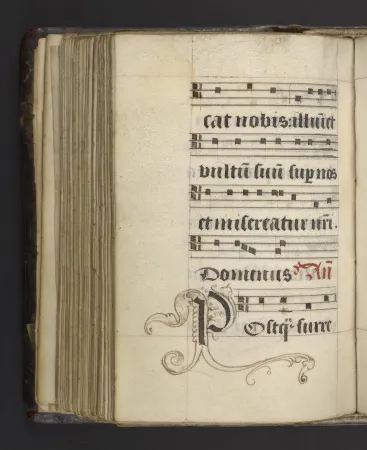 cat nobis: illumēt
vultū suū sup nos
et misereatur nr̄i.
Domenus An̄
Postq̄ surre